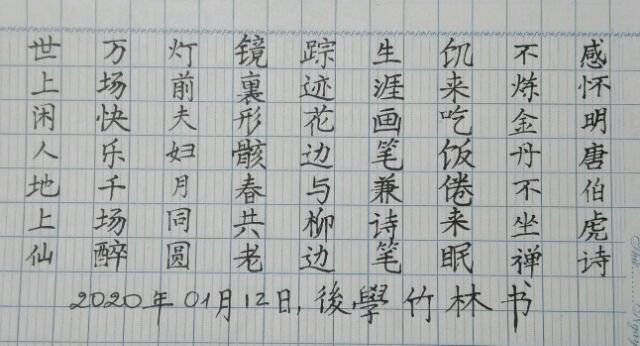 感怀明唐伯虎诗
不炼金丹不坐禅
饥来吃饭倦来眠
生涯画笔兼诗笔
踪迹花边与柳边
镜裏形骸春共老
灯前夫妇月同圆
万场快乐千场醉
世上闲人地上仙
2020年01月12日,後學竹林书